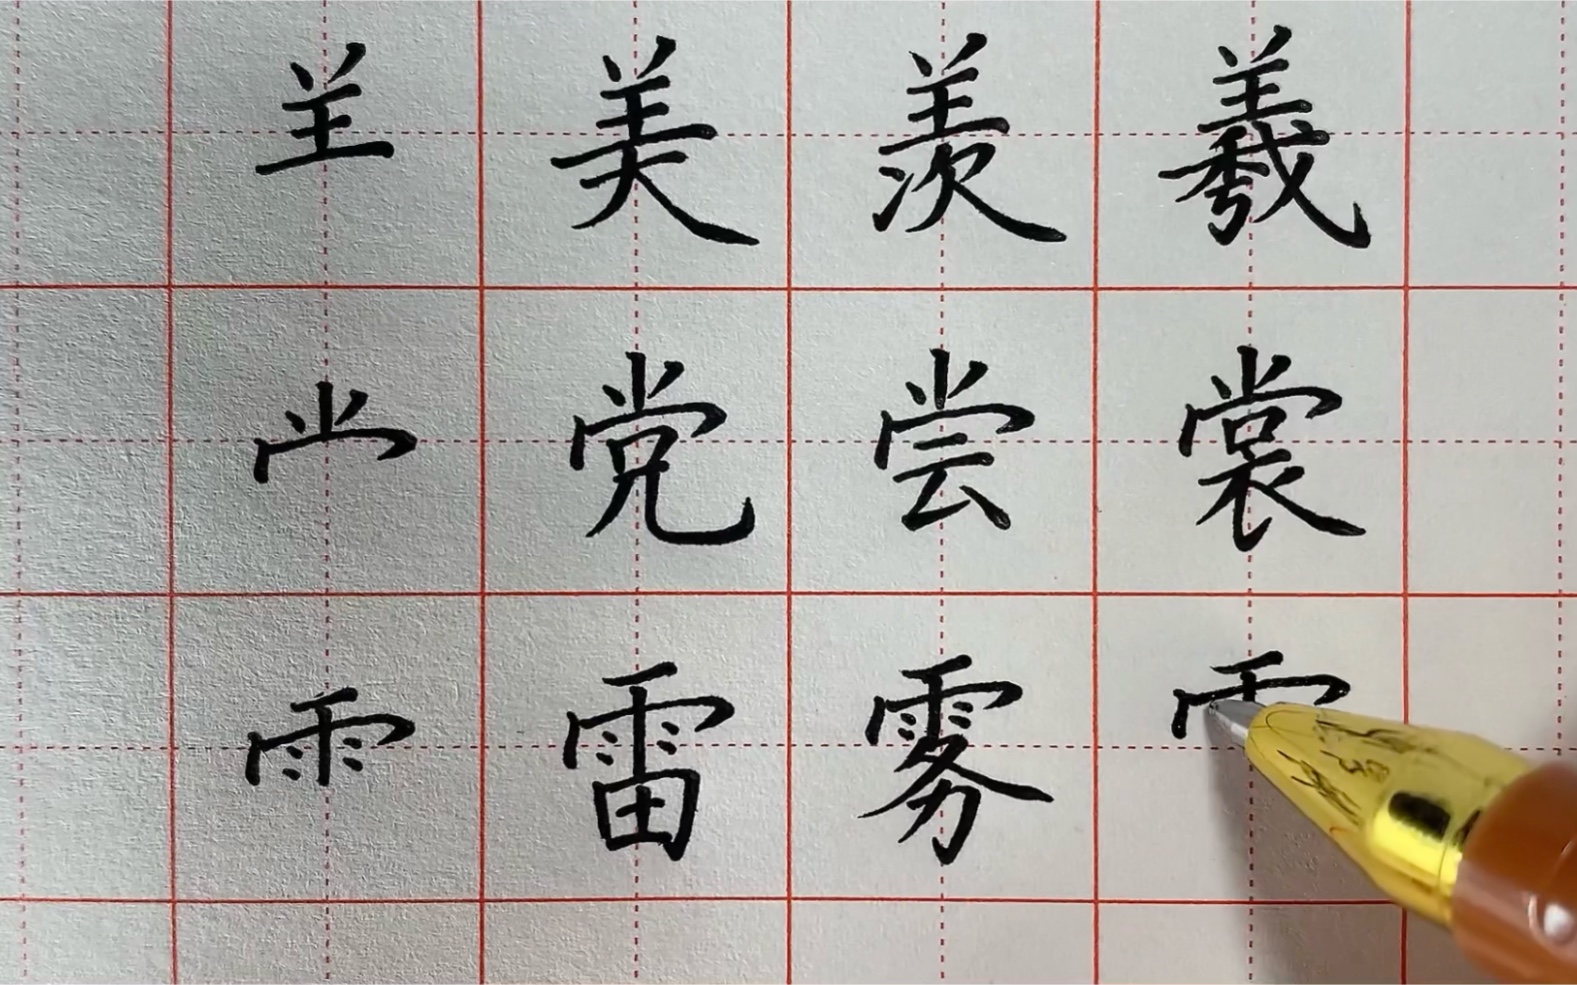 ⺷ 美 羡 羲
龸 党 尝 裳
⻗ 雷 雾